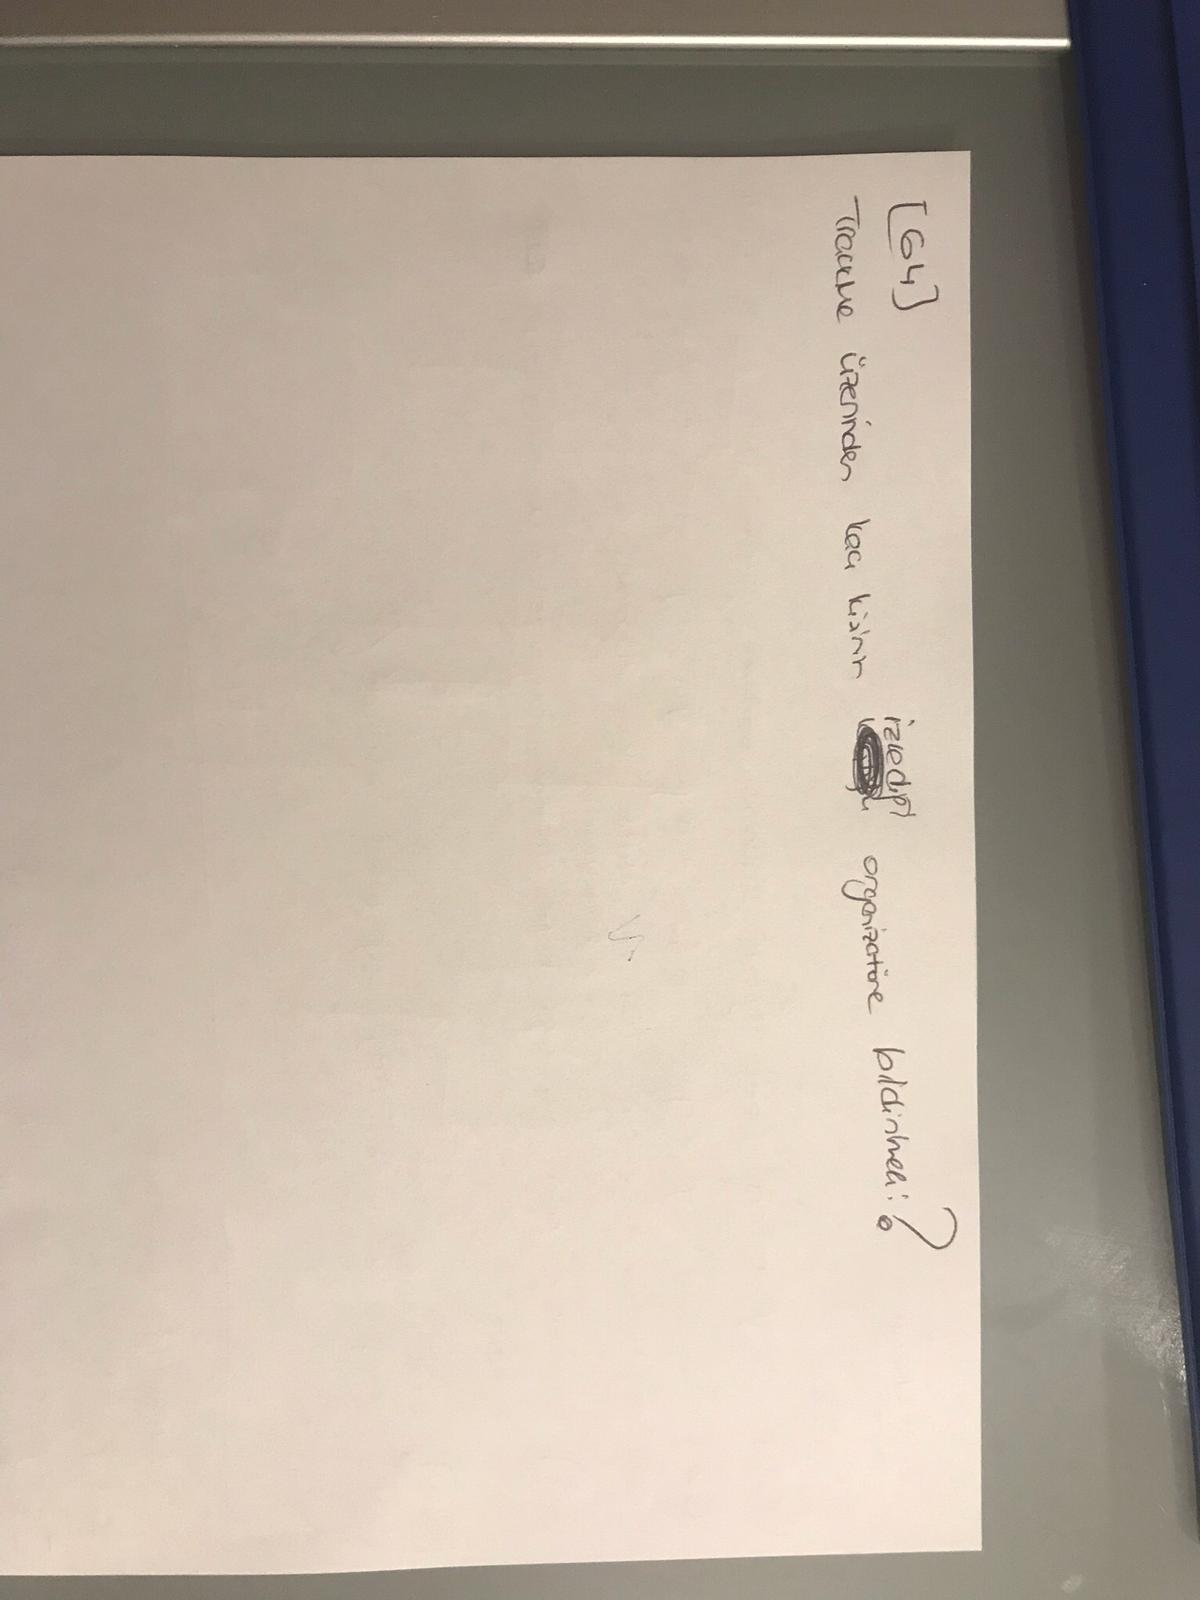 [64]
Trackme üzerinden kaç kişinin izlediği organizatöre bildirilmeli?